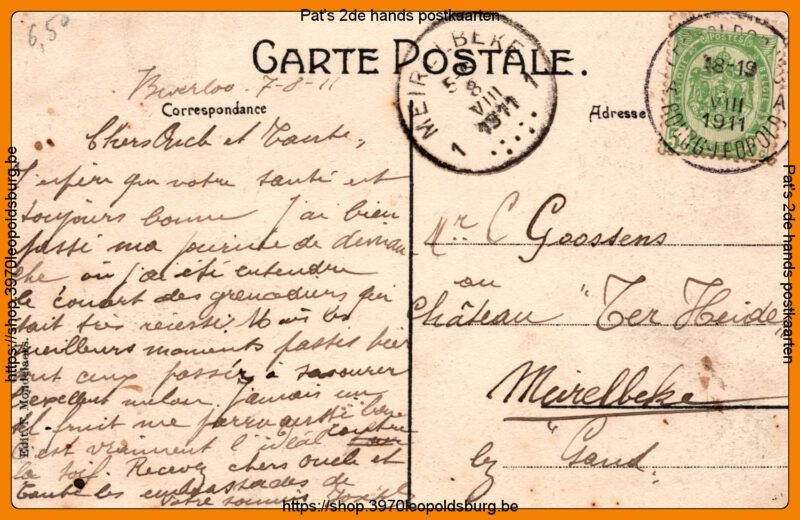 Pat's 2de hands postkaarten
6,50
CARTE POSTALE.
Beverloo 7-8-11
Correspondance
Adresse
MEIRELBEKE
8
VIII
1911
1 1
18-19
VIII
1911
BOURG-LEOPOLD
Chers Oncle et Tante,
J'espère que votre santé est
toujours bonne J'ai bien
passé ma journée de diman
che où j'ai été entendre
le concert des grenadiers qui
était très réussi. Mais les
meilleurs moments passés hier
sont ceux passés à savourer
l'excellent melon. Jamais un
tel fruit me parru aussi bon
C'est vraiment l'idéal contre
la soif. Recevez chers Oncle et
Tante les embrassades de
votre
Mr. C Goossens
au
Château "Ter Heide"
Meirelbeke
by Gand.
Edit. F. Mondelaers.
https://shop.3970leopoldsburg.be
Pat's 2de hands postkaarten
https://shop.3970leopoldsburg.be